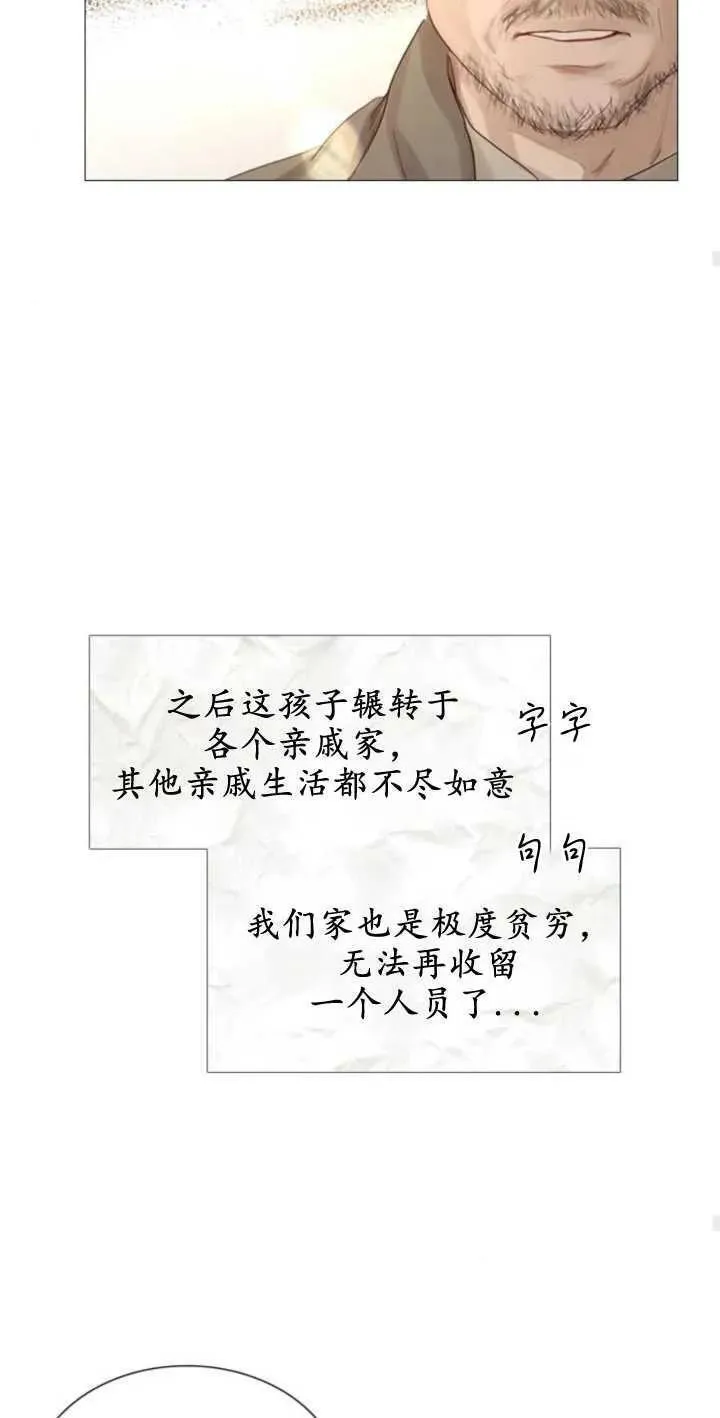 之后这孩子辗转于
各个亲戚家，
其他亲戚生活都不尽如意
字字
句句
我们家也是极度贫穷，
无法再收留
一个人员了...